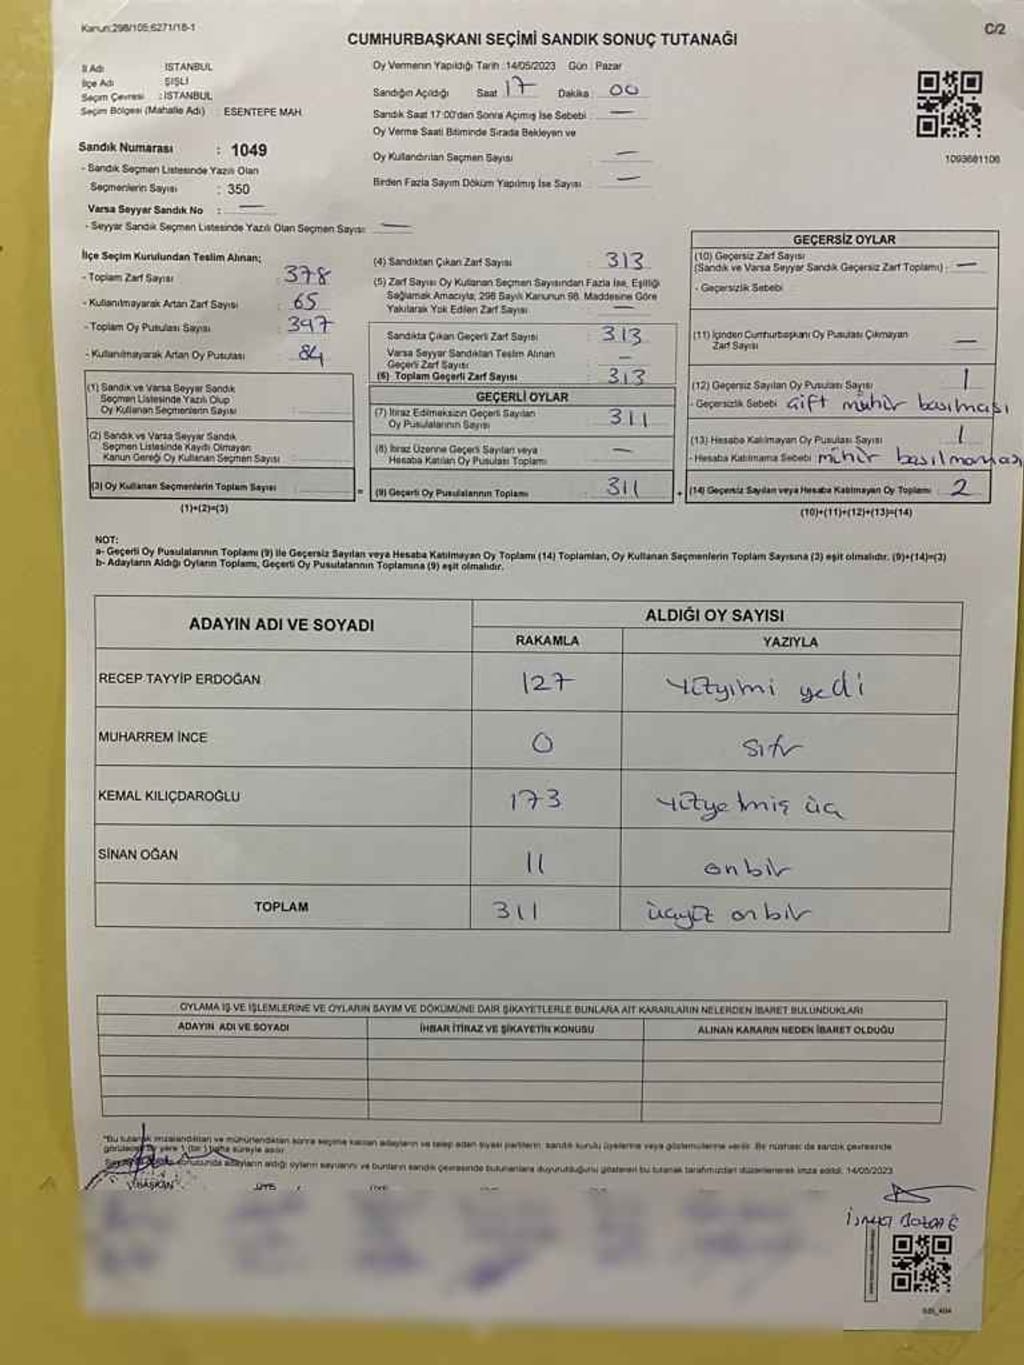 Kanun:298/105;6271/18-1
C/2
CUMHURBAŞKANI SEÇİMİ SANDIK SONUÇ TUTANAĞI
İl Adı İSTANBUL
İlçe Adı ŞİŞLİ
Seçim Çevresi : İSTANBUL
Seçim Bölgesi (Mahalle Adı) : ESENTEPE MAH.
Sandık Numarası : 1049
- Sandık Seçmen Listesinde Yazılı Olan
Seçmenlerin Sayısı : 350
Varsa Seyyar Sandık No : —
- Seyyar Sandık Seçmen Listesinde Yazılı Olan Seçmen Sayısı: —
Oy Vermenin Yapıldığı Tarih :14/05/2023 Gün : Pazar
Sandığın Açıldığı Saat 17 Dakika : 00
Sandık Saat 17:00'den Sonra Açımış İse Sebebi : —
Oy Verme Saati Bitiminde Sırada Bekleyen ve
Oy Kullandırılan Seçmen Sayısı : —
Birden Fazla Sayım Döküm Yapılmış İse Sayısı : —
1093681106
İlçe Seçim Kurulundan Teslim Alınan;
- Toplam Zarf Sayısı : 378
- Kullanılmayarak Artan Zarf Sayısı : 65
- Toplam Oy Pusulası Sayısı : 397
- Kullanılmayarak Artan Oy Pusulası : 84
(1) Sandık ve Varsa Seyyar Sandık
Seçmen Listesinde Yazılı Olup
Oy Kullanan Seçmenlerin Sayısı :
(2) Sandık ve Varsa Seyyar Sandık
Seçmen Listesinde Kaydı Olmayan
Kanun Gereği Oy Kullanan Seçmen Sayısı :
(3) Oy Kullanan Seçmenlerin Toplam Sayısı : =
(1)+(2)=(3)
(4) Sandıktan Çıkan Zarf Sayısı : 313
(5) Zarf Sayısı Oy Kullanan Seçmen Sayısından Fazla İse, Eşitliği
Sağlamak Amacıyla; 298 Sayılı Kanunun 98. Maddesine Göre
Yakılarak Yok Edilen Zarf Sayısı : —
Sandıkta Çıkan Geçerli Zarf Sayısı : 313
Varsa Seyyar Sandıktan Teslim Alınan
Geçerli Zarf Sayısı : —
(6) Toplam Geçerli Zarf Sayısı : 313
GEÇERLİ OYLAR
(7) İtiraz Edilmeksizin Geçerli Sayılan
Oy Pusulalarının Sayısı : 311
(8) İtiraz Üzerine Geçerli Sayılan veya
Hesaba Katılan Oy Pusulası Toplamı : —
(9) Geçerli Oy Pusulalarının Toplamı : 311 +
GEÇERSİZ OYLAR
(10) Geçersiz Zarf Sayısı
(Sandık ve Varsa Seyyar Sandık Geçersiz Zarf Toplamı) : —
- Geçersizlik Sebebi
(11) İçinden Cumhurbaşkanı Oy Pusulası Çıkmayan
Zarf Sayısı : —
(12) Geçersiz Sayılan Oy Pusulası Sayısı : 1
- Geçersizlik Sebebi Çift mühür basılması
(13) Hesaba Katılmayan Oy Pusulası Sayısı : 1
- Hesaba Katılmama Sebebi mühür basılmaması
(14) Geçersiz Sayılan veya Hesaba Katılmayan Oy Toplamı : 2
(10)+(11)+(12)+(13)=(14)
NOT:
a- Geçerli Oy Pusulalarının Toplamı (9) ile Geçersiz Sayılan veya Hesaba Katılmayan Oy Toplamı (14) Toplamları, Oy Kullanan Seçmenlerin Toplam Sayısına (3) eşit olmalıdır. (9)+(14)=(3)
b- Adayların Aldığı Oyların Toplamı, Geçerli Oy Pusulalarının Toplamına (9) eşit olmalıdır.
ADAYIN ADI VE SOYADI ALDIĞI OY SAYISI
RAKAMLA YAZIYLA
RECEP TAYYİP ERDOĞAN 127 yüzyirmi yedi
MUHARREM İNCE 0 sıfır
KEMAL KILIÇDAROĞLU 173 yüzyetmiş üç
SİNAN OĞAN 11 onbir
TOPLAM 311 üçyüz onbir
OYLAMA İŞ VE İŞLEMLERİNE VE OYLARIN SAYIM VE DÖKÜMÜNE DAİR ŞİKAYETLERLE BUNLARA AİT KARARLARIN NELERDEN İBARET BULUNDUKLARI
ADAYIN ADI VE SOYADI İHBAR İTİRAZ VE ŞİKAYETİN KONUSU ALINAN KARARIN NEDEN İBARET OLDUĞU
"Bu tutanak imzalandıktan ve mühürlendikten sonra seçime katılan adayların ve talep eden siyasi partilerin, sandık kurulu üyelerine veya gözlemcilerine verilir. Bir nüshası da sandık çevresinde
görülecek bir yere 1 (bir) hafta süreyle asılır
sonucunda adayların aldığı oyların sayılarını ve bunların sandık çevresinde bulunanlara duyurulduğunu gösteren bu tutanak tarafımızdan düzenlenerek imza edildi. 14/05/2023
BAŞKAN